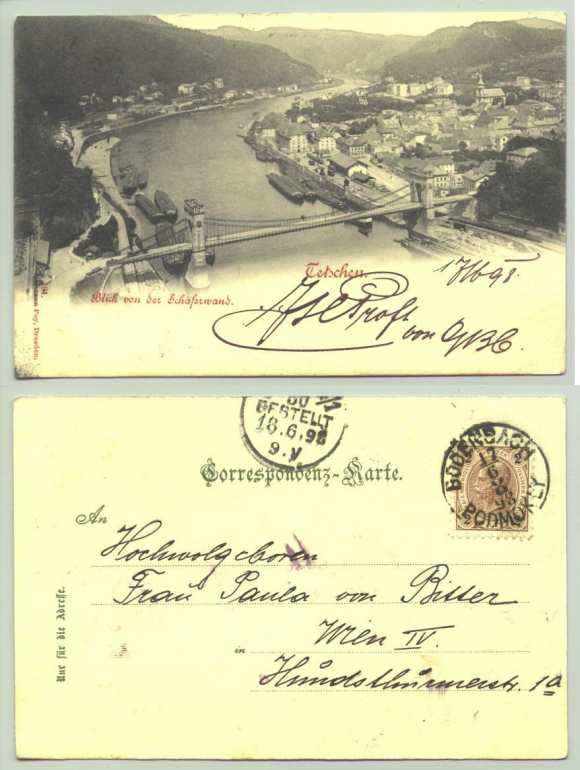 Tetschen.
Blick von der Schäferwand.
17/6 98
Prost
von
BESTELLT
18.6.98
9.V
Correspondenz-Karte.
BODENBACH
17
6
98
PODMOKLY
An
Hochwolgeboren
Frau Paula von Bitter
Wien IV.
in
Hundsthürmerstr. 1a
Nur für die Adresse.